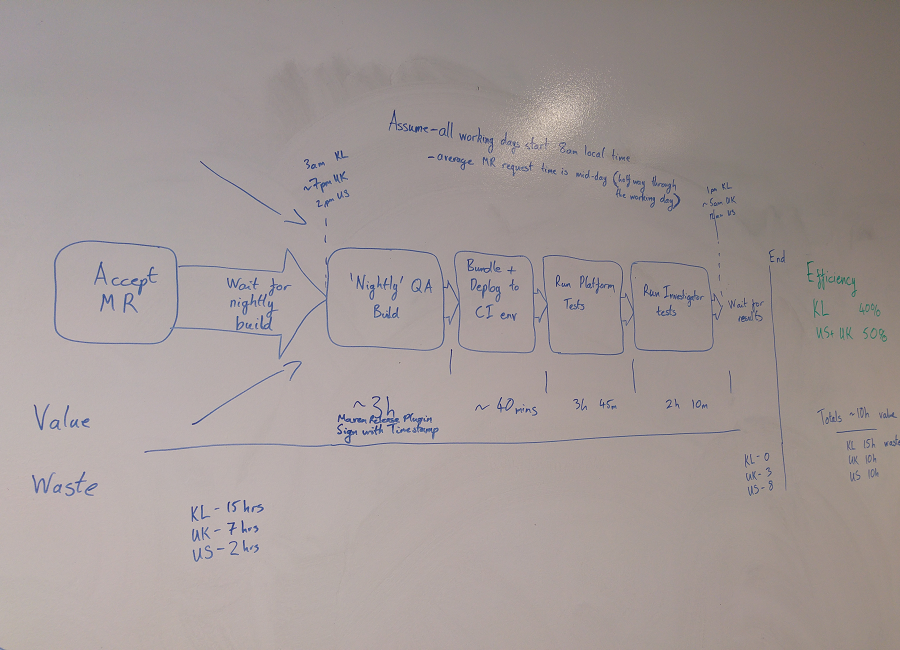 Assume - all working days start 8am local time
- average MR request time is mid-day (halfway through
the working day)
3am KL
~7pm UK
2pm US
1pm KL
~5am UK
US
Accept
MR
Wait for
nightly
build
'Nightly' QA
Build
Bundle +
Deploy to
CI env
Run Platform
Tests
Run Investigator
tests
Wait for
results
End
Efficiency
KL 40%
US+UK 50%
Value
~3h
Maven Release Plugin
Sign with Timestamp
~40mins
3h 45m
2h 10m
Totals ~10h value
KL 15h waste
UK 10h
US 10h
Waste
KL - 15hrs
UK - 7hrs
US - 2hrs
KL - 0
UK - 3
US - 8